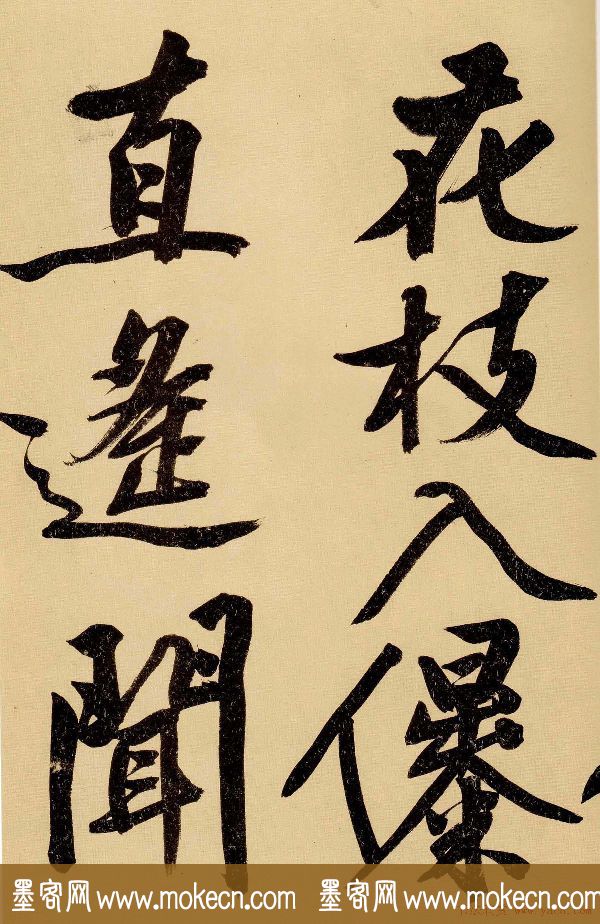 花枝入儤
直聞
墨客网 www.mokecn.com 墨客网 www.mokecn.com